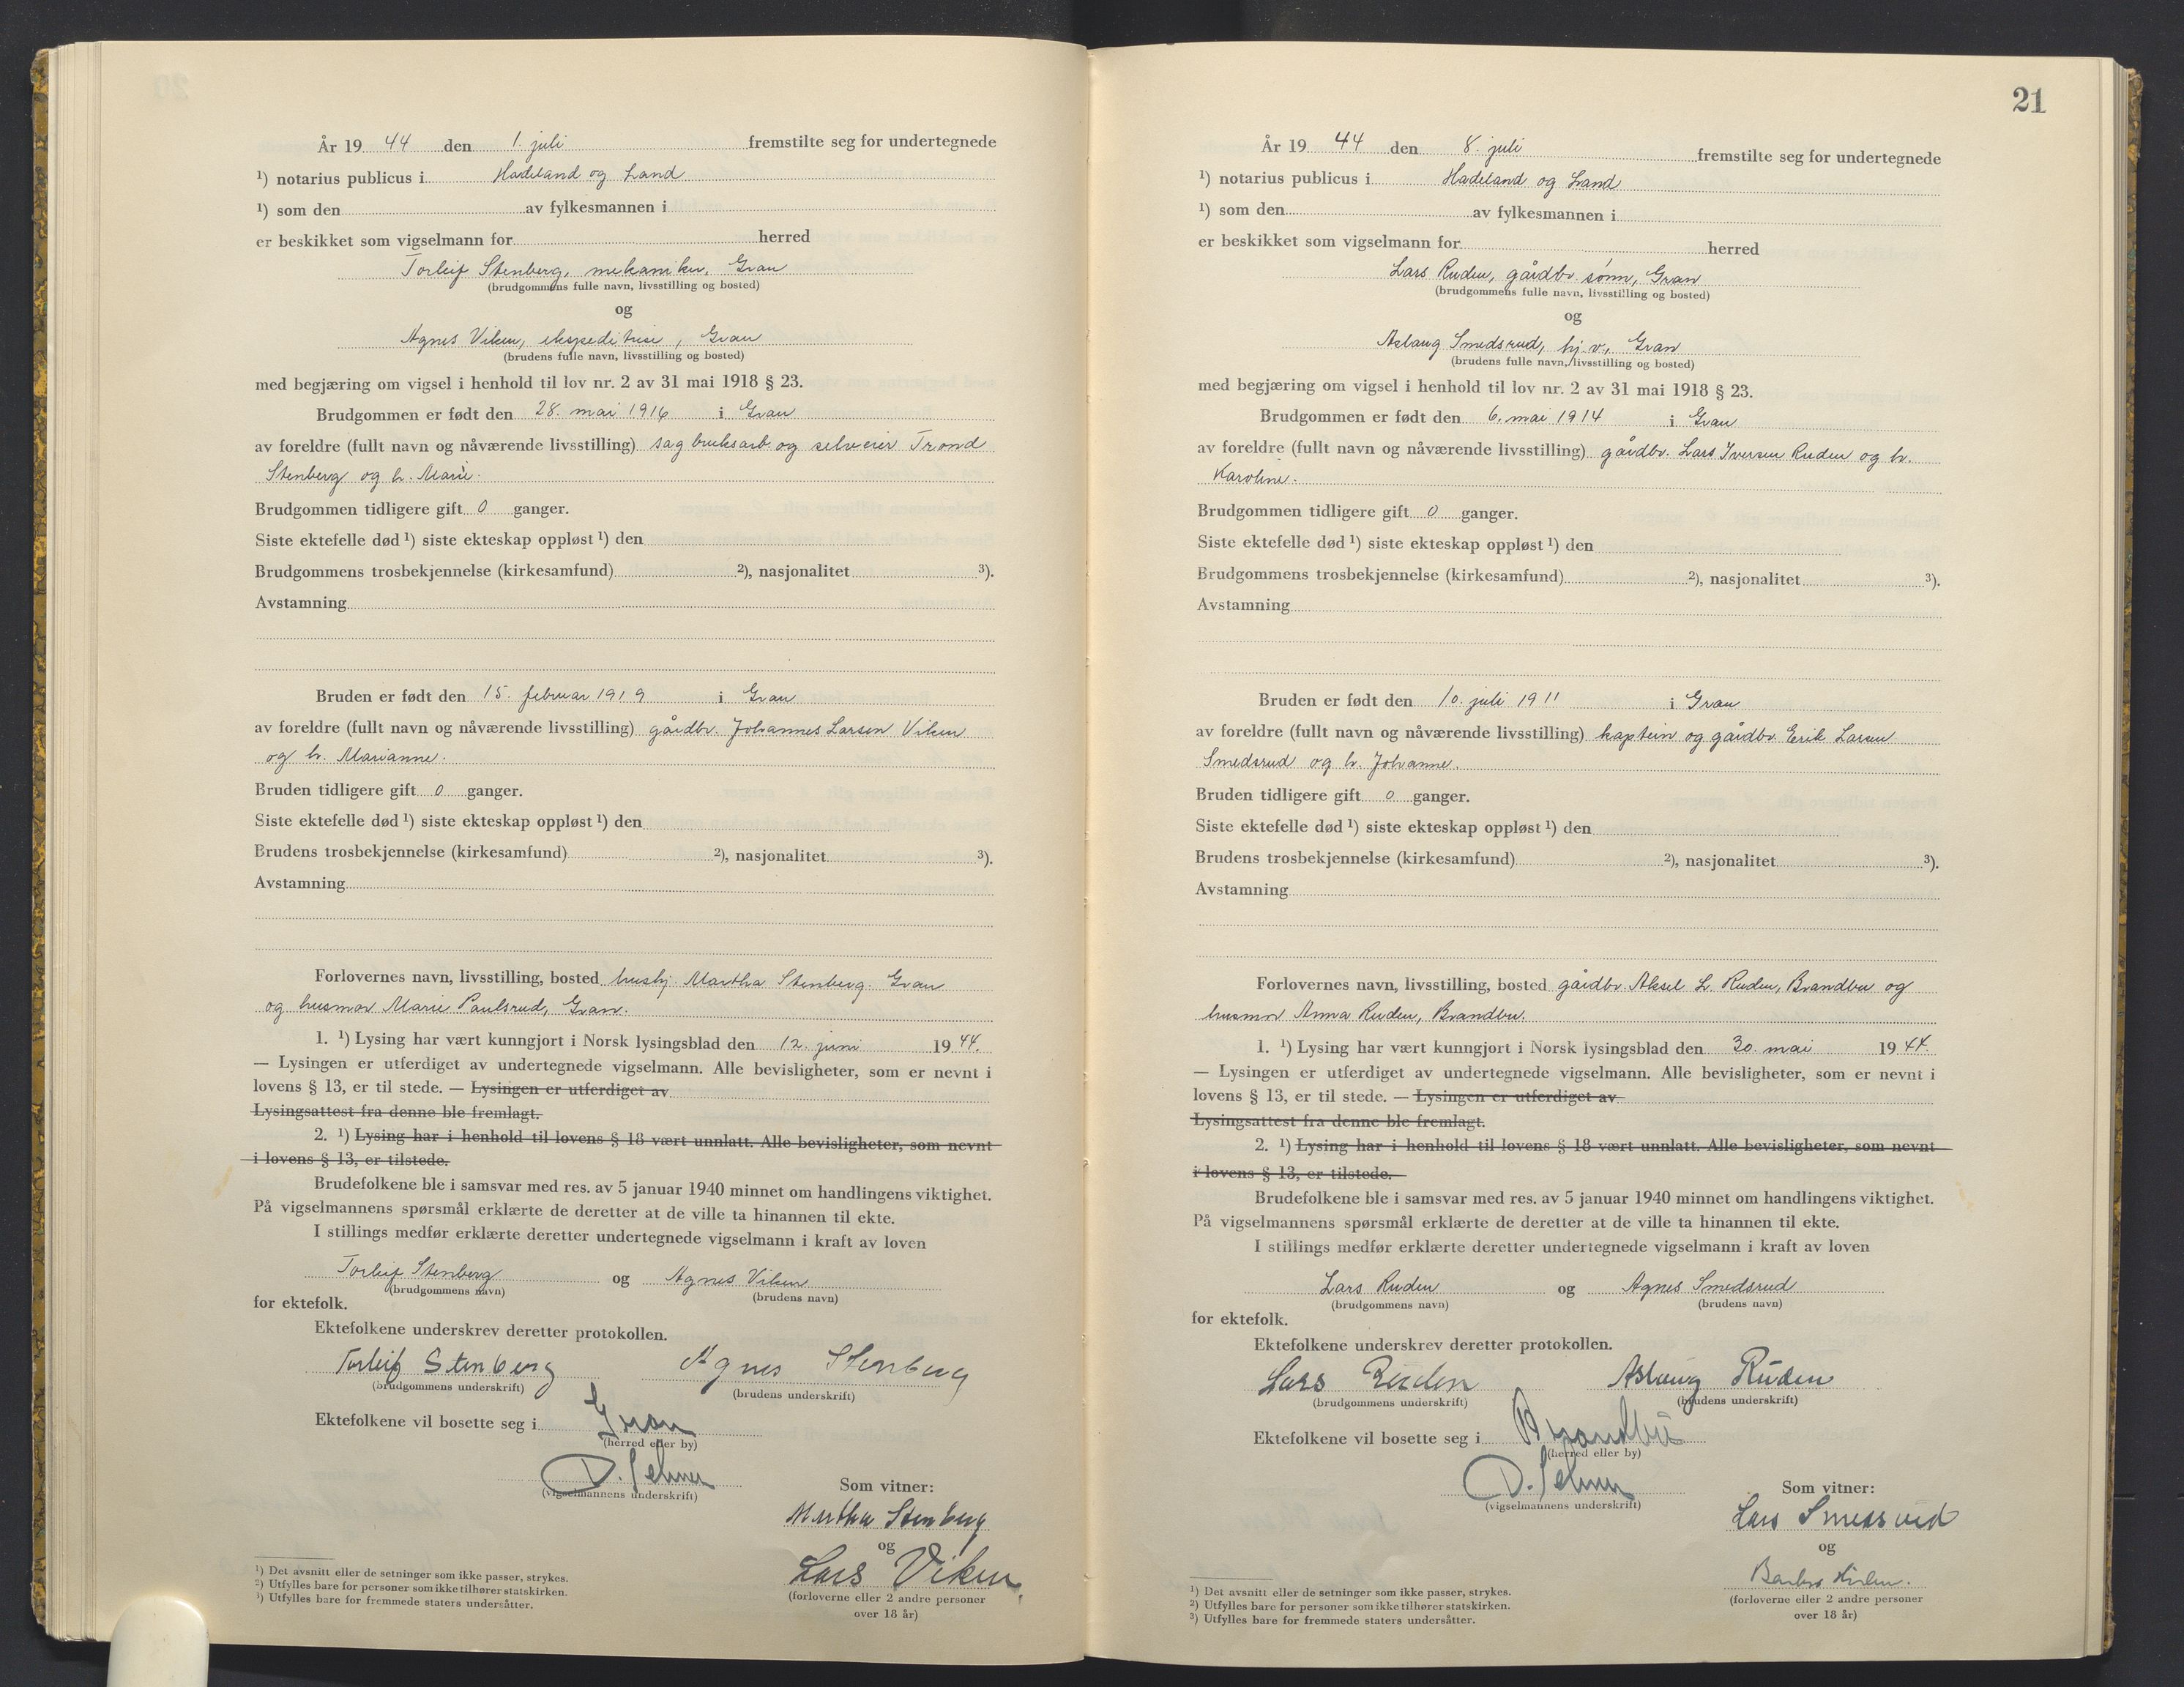 År 19 44 den 1. juli fremstilte seg for undertegnede
¹) notarius publicus i Hadeland og Land
¹) som den av fylkesmannen i
er beskikket som vigselmann for herred
Torleif Stenberg, mekaniker, Gran
(brudgommens fulle navn, livsstilling og bosted)
og
Agnes Viken, ekspeditrise, Gran
(brudens fulle navn, livsstilling og bosted)
med begjæring om vigsel i henhold til lov nr. 2 av 31 mai 1918 § 23.
Brudgommen er født den 28. mai 1916 i Gran
av foreldre (fullt navn og nåværende livsstilling) sagbruksarb. og selveier Trond
Stenberg og h. Marie.
Brudgommen tidligere gift 0 ganger.
Siste ektefelle død ¹) siste ekteskap oppløst ¹) den
Brudgommens trosbekjennelse (kirkesamfund) ²), nasjonalitet ³).
Avstamning
Bruden er født den 15. februar 1919 i Gran
av foreldre (fullt navn og nåværende livsstilling) gårdbr. Johannes Larsen Viken
og h. Marianne.
Bruden tidligere gift 0 ganger.
Siste ektefelle død ¹) siste ekteskap oppløst ¹) den
Brudens trosbekjennelse (kirkesamfund) ²), nasjonalitet ³).
Avstamning
Forlovernes navn, livsstilling, bosted hushj. Martha Stenberg. Gran
og husmor Marie Paulsrud, Gran.
1. ¹) Lysing har vært kunngjort i Norsk lysingsblad den 12. juni 19 44.
— Lysingen er utferdiget av undertegnede vigselmann. Alle bevisligheter, som er nevnt i
lovens § 13, er til stede. — Lysingen er utferdiget av
Lysingsattest fra denne ble fremlagt.
2. ¹) Lysing har i henhold til lovens § 18 vært unnlatt. Alle bevisligheter, som nevnt
i lovens § 13, er tilstede.
Brudefolkene ble i samsvar med res. av 5 januar 1940 minnet om handlingens viktighet.
På vigselmannens spørsmål erklærte de deretter at de ville ta hinannen til ekte.
I stillings medfør erklærte deretter undertegnede vigselmann i kraft av loven
Torleif Stenberg og Agnes Viken
(brudgommens navn) (brudens navn)
for ektefolk.
Ektefolkene underskrev deretter protokollen.
Torleif Stenberg Agnes Stenberg
(brudgommens underskrift) (brudens underskrift)
Ektefolkene vil bosette seg i Gran
(herred eller by)
(vigselmannens underskrift)
Som vitner:
Martha Stenberg
og
Lars Viken
(forloverne eller 2 andre personer
over 18 år)
¹) Det avsnitt eller de setninger som ikke passer, strykes.
²) Utfylles bare for personer som ikke tilhører statskirken.
³) Utfylles bare for fremmede staters undersåtter.
21
År 19 44 den 8. juli fremstilte seg for undertegnede
¹) notarius publicus i Hadeland og Land
¹) som den av fylkesmannen i
er beskikket som vigselmann for herred
Lars Ruden, gårdbr. sønn, Gran
(brudgommens fulle navn, livsstilling og bosted)
og
Aslaug Smedsrud, hj.v., Gran
(brudens fulle navn, livsstilling og bosted)
med begjæring om vigsel i henhold til lov nr. 2 av 31 mai 1918 § 23.
Brudgommen er født den 6. mai 1914 i Gran
av foreldre (fullt navn og nåværende livsstilling) gårdbr. Lars Iversen Ruden og h.
Karoline.
Brudgommen tidligere gift 0 ganger.
Siste ektefelle død ¹) siste ekteskap oppløst ¹) den
Brudgommens trosbekjennelse (kirkesamfund) ²), nasjonalitet ³).
Avstamning
Bruden er født den 10. juli 1911 i Gran
av foreldre (fullt navn og nåværende livsstilling) kaptein og gårdbr. Erik Larsen
Smedsrud og h. Johanne.
Bruden tidligere gift 0 ganger.
Siste ektefelle død ¹) siste ekteskap oppløst ¹) den
Brudens trosbekjennelse (kirkesamfund) ²), nasjonalitet ³).
Avstamning
Forlovernes navn, livsstilling, bosted gårdbr. Aksel L. Ruden, Brandbu og
husmor Anna Ruden, Brandbu.
1. ¹) Lysing har vært kunngjort i Norsk lysingsblad den 30. mai 19 44.
— Lysingen er utferdiget av undertegnede vigselmann. Alle bevisligheter, som er nevnt i
lovens § 13, er til stede. — Lysingen er utferdiget av
Lysingsattest fra denne ble fremlagt.
2. ¹) Lysing har i henhold til lovens § 18 vært unnlatt. Alle bevisligheter, som nevnt
i lovens § 13, er tilstede.
Brudefolkene ble i samsvar med res. av 5 januar 1940 minnet om handlingens viktighet.
På vigselmannens spørsmål erklærte de deretter at de ville ta hinannen til ekte.
I stillings medfør erklærte deretter undertegnede vigselmann i kraft av loven
Lars Ruden og Agnes Smedsrud
(brudgommens navn) (brudens navn)
for ektefolk.
Ektefolkene underskrev deretter protokollen.
Lars Ruden Aslaug Ruden
(brudgommens underskrift) (brudens underskrift)
Ektefolkene vil bosette seg i Brandbu
(herred eller by)
(vigselmannens underskrift)
Som vitner:
Lars Smedsrud
og
(forloverne eller 2 andre personer
over 18 år)
¹) Det avsnitt eller de setninger som ikke passer, strykes.
²) Utfylles bare for personer som ikke tilhører statskirken.
³) Utfylles bare for fremmede staters undersåtter.